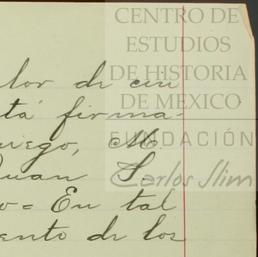 CENTRO DE
ESTUDIOS
DE HISTORIA
DE MEXICO
FUNDACIÓN
Carlos Slim
lor de un
tá firma-
uego, M.
Juan S.
o = En tal
ento de los